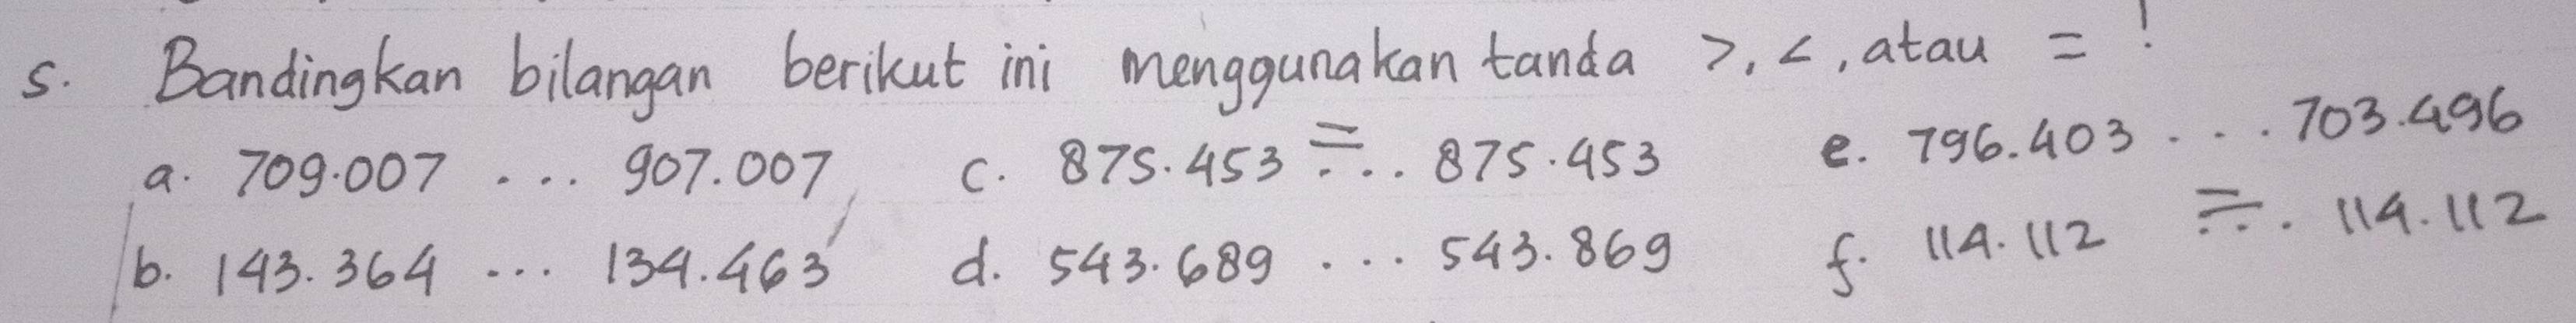 5. Bandingkan bilangan berikut ini menggunakan tanda >, <, atau = !
a. 709.007 ... 907.007 c. 875.453 =... 875.453 e. 796.403 ... 703.496
b. 143.364 ... 134.463 d. 543.689 ... 543.869 f. 114.112 =... 114.112